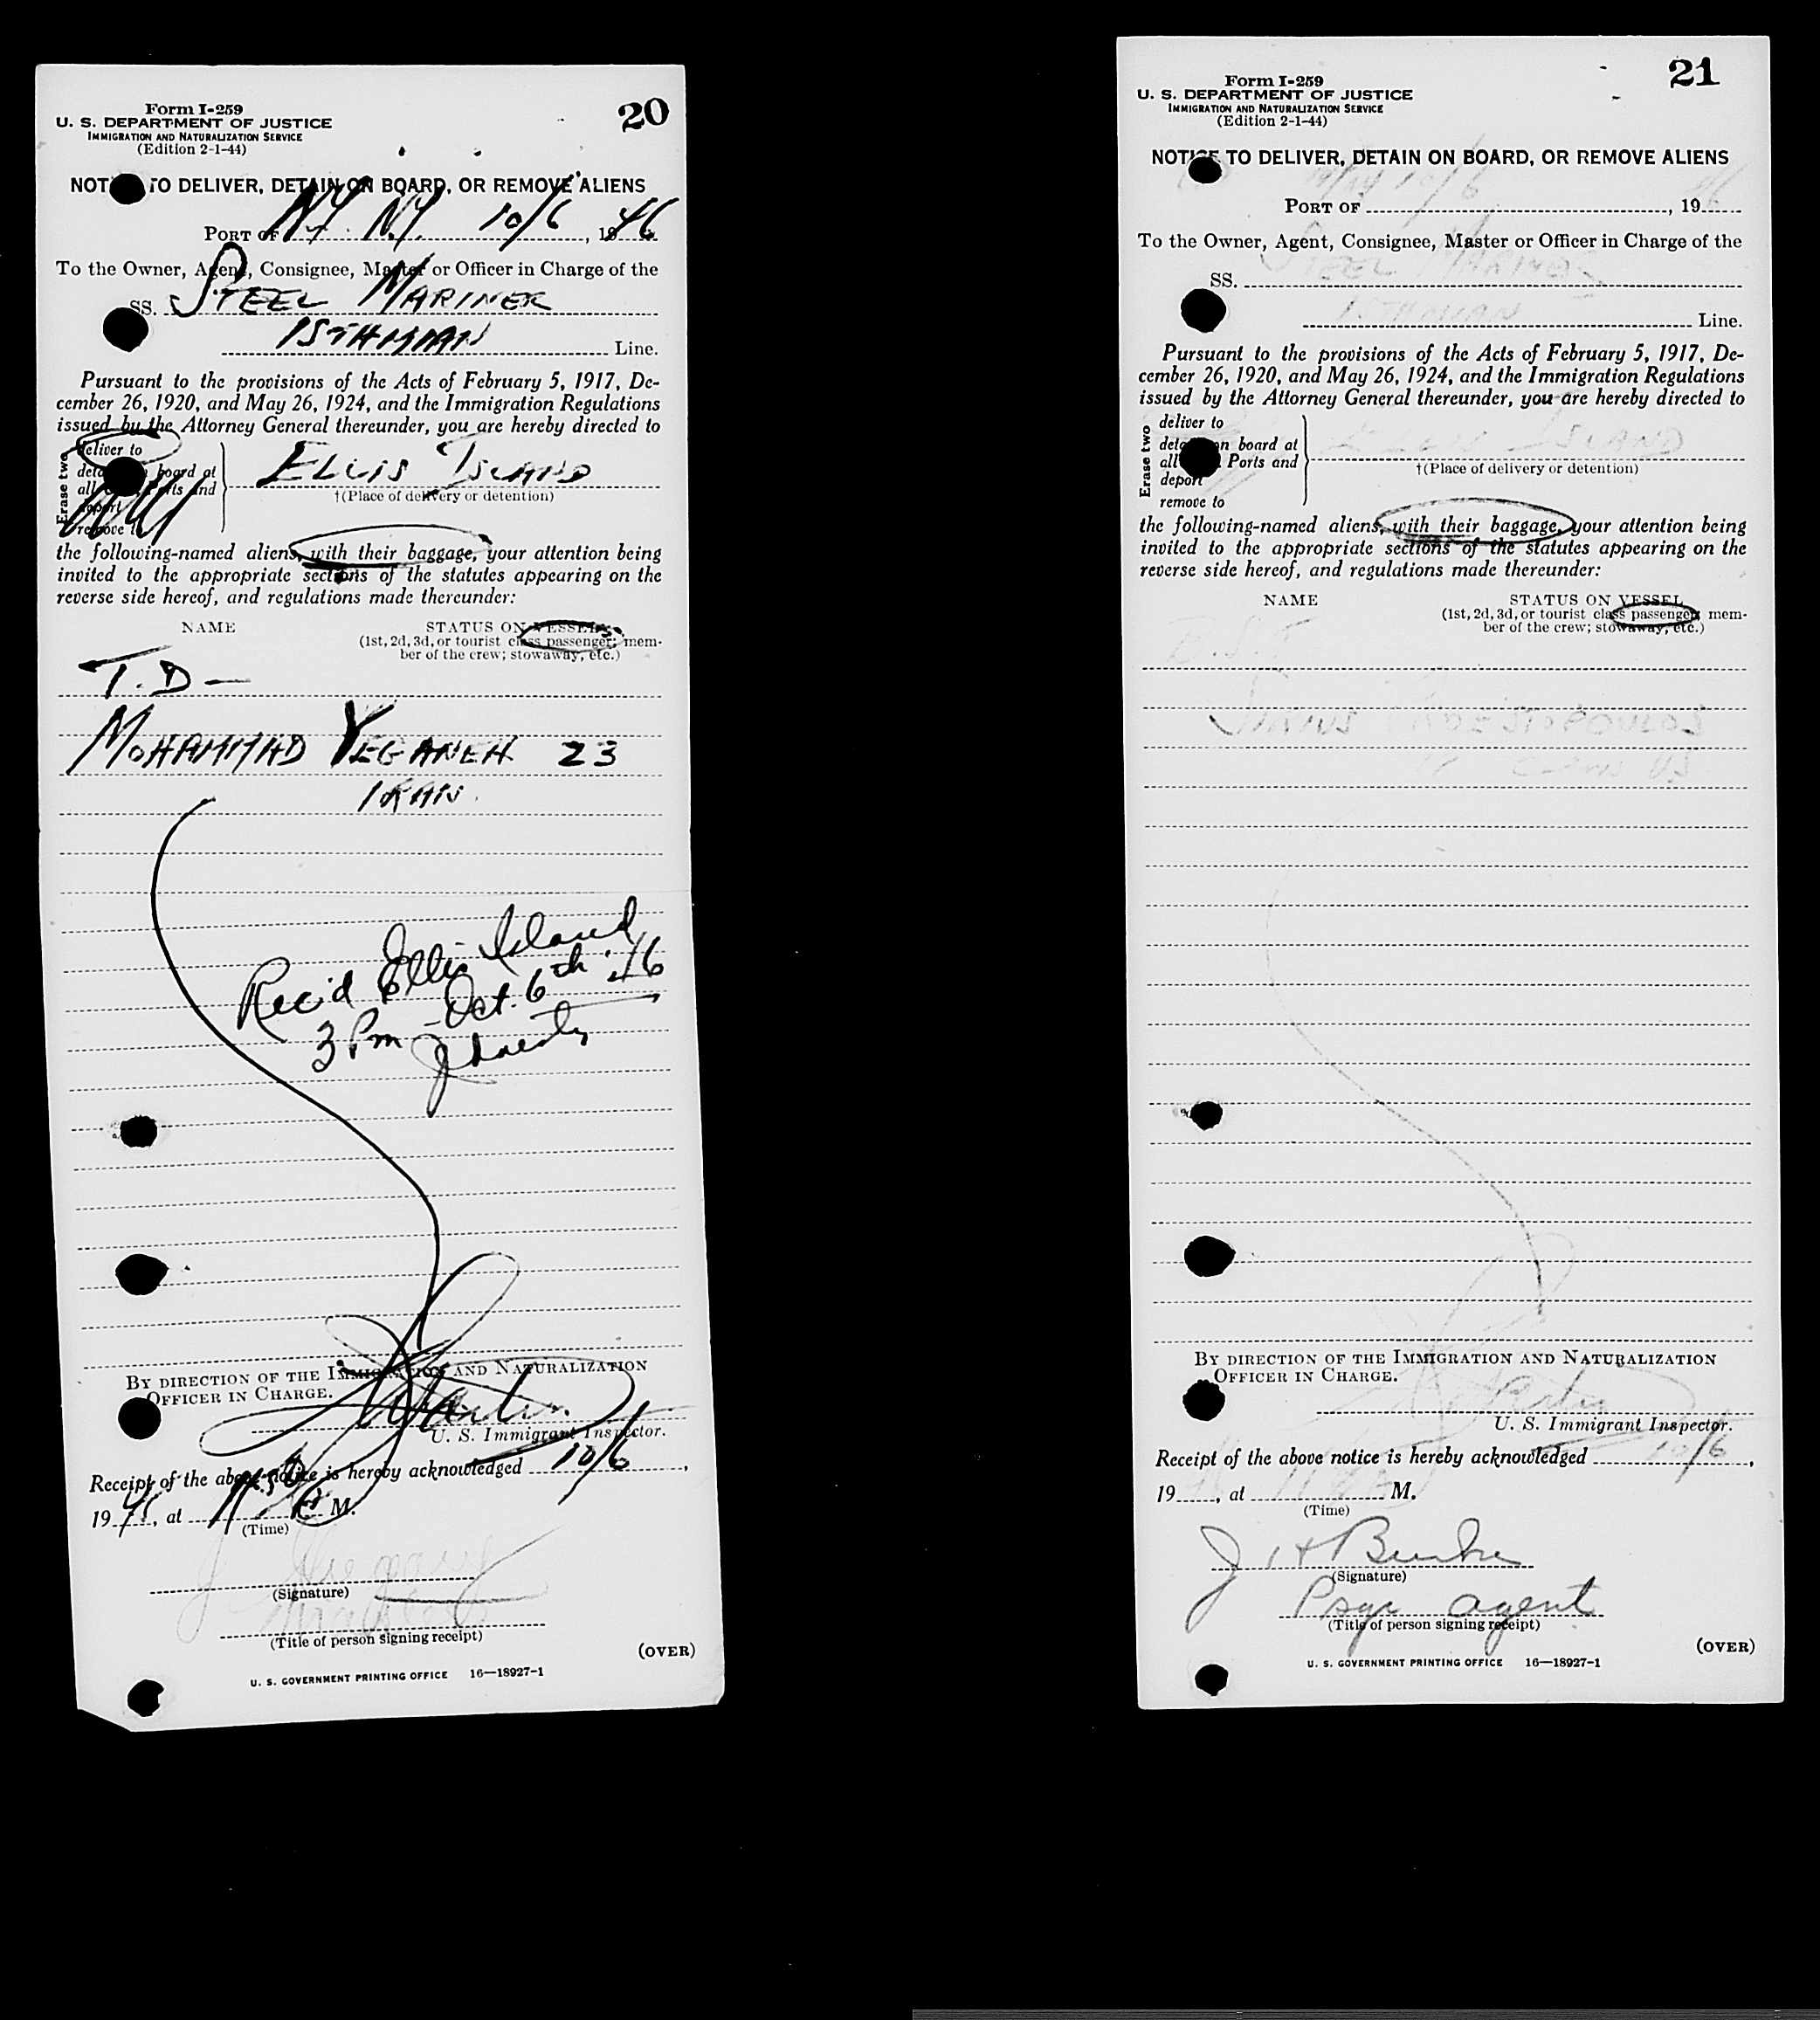 20
Form I-259
U. S. DEPARTMENT OF JUSTICE
IMMIGRATION AND NATURALIZATION SERVICE
(Edition 2-1-44)
NOTICE TO DELIVER, DETAIN ON BOARD, OR REMOVE ALIENS
PORT OF N.Y. N.Y. 10/6, 1946
To the Owner, Agent, Consignee, Master or Officer in Charge of the
SS. STEEL MARINER
ISTHMIAN Line.
Pursuant to the provisions of the Acts of February 5, 1917, De-
cember 26, 1920, and May 26, 1924, and the Immigration Regulations
issued by the Attorney General thereunder, you are hereby directed to
Erase two
deliver to
detain on board at
all Ports and
deport
remove to
ELLIS ISLAND
†(Place of delivery or detention)
the following-named aliens, with their baggage, your attention being
invited to the appropriate sections of the statutes appearing on the
reverse side hereof, and regulations made thereunder:
NAME STATUS ON VESSEL
(1st, 2d, 3d, or tourist class passenger; mem-
ber of the crew; stowaway, etc.)
T.D—
MOHAMMAD YEGANEH 23
IRAN
Rec'd Ellis Island
3 Pm - Oct. 6th '46
BY DIRECTION OF THE IMMIGRATION AND NATURALIZATION
OFFICER IN CHARGE.
U. S. Immigrant Inspector.
Receipt of the above notice is hereby acknowledged 10/6,
19, at M.
(Time)
(Signature)
(Title of person signing receipt)
(OVER)
U. S. GOVERNMENT PRINTING OFFICE 16—18927-1
21
Form I-259
U. S. DEPARTMENT OF JUSTICE
IMMIGRATION AND NATURALIZATION SERVICE
(Edition 2-1-44)
NOTICE TO DELIVER, DETAIN ON BOARD, OR REMOVE ALIENS
PORT OF N.Y. 10/6, 1946
To the Owner, Agent, Consignee, Master or Officer in Charge of the
SS. STEEL MARINER
ISTHMIAN Line.
Pursuant to the provisions of the Acts of February 5, 1917, De-
cember 26, 1920, and May 26, 1924, and the Immigration Regulations
issued by the Attorney General thereunder, you are hereby directed to
Erase two
deliver to
detain on board at
all Ports and
deport
remove to
ELLIS ISLAND
†(Place of delivery or detention)
the following-named aliens, with their baggage, your attention being
invited to the appropriate sections of the statutes appearing on the
reverse side hereof, and regulations made thereunder:
NAME STATUS ON VESSEL
(1st, 2d, 3d, or tourist class passenger; mem-
ber of the crew; stowaway, etc.)
BY DIRECTION OF THE IMMIGRATION AND NATURALIZATION
OFFICER IN CHARGE.
U. S. Immigrant Inspector.
Receipt of the above notice is hereby acknowledged 10/6,
19, at M.
(Time)
J H Burke
(Signature)
Psgr agent
(Title of person signing receipt)
(OVER)
U. S. GOVERNMENT PRINTING OFFICE 16—18927-1